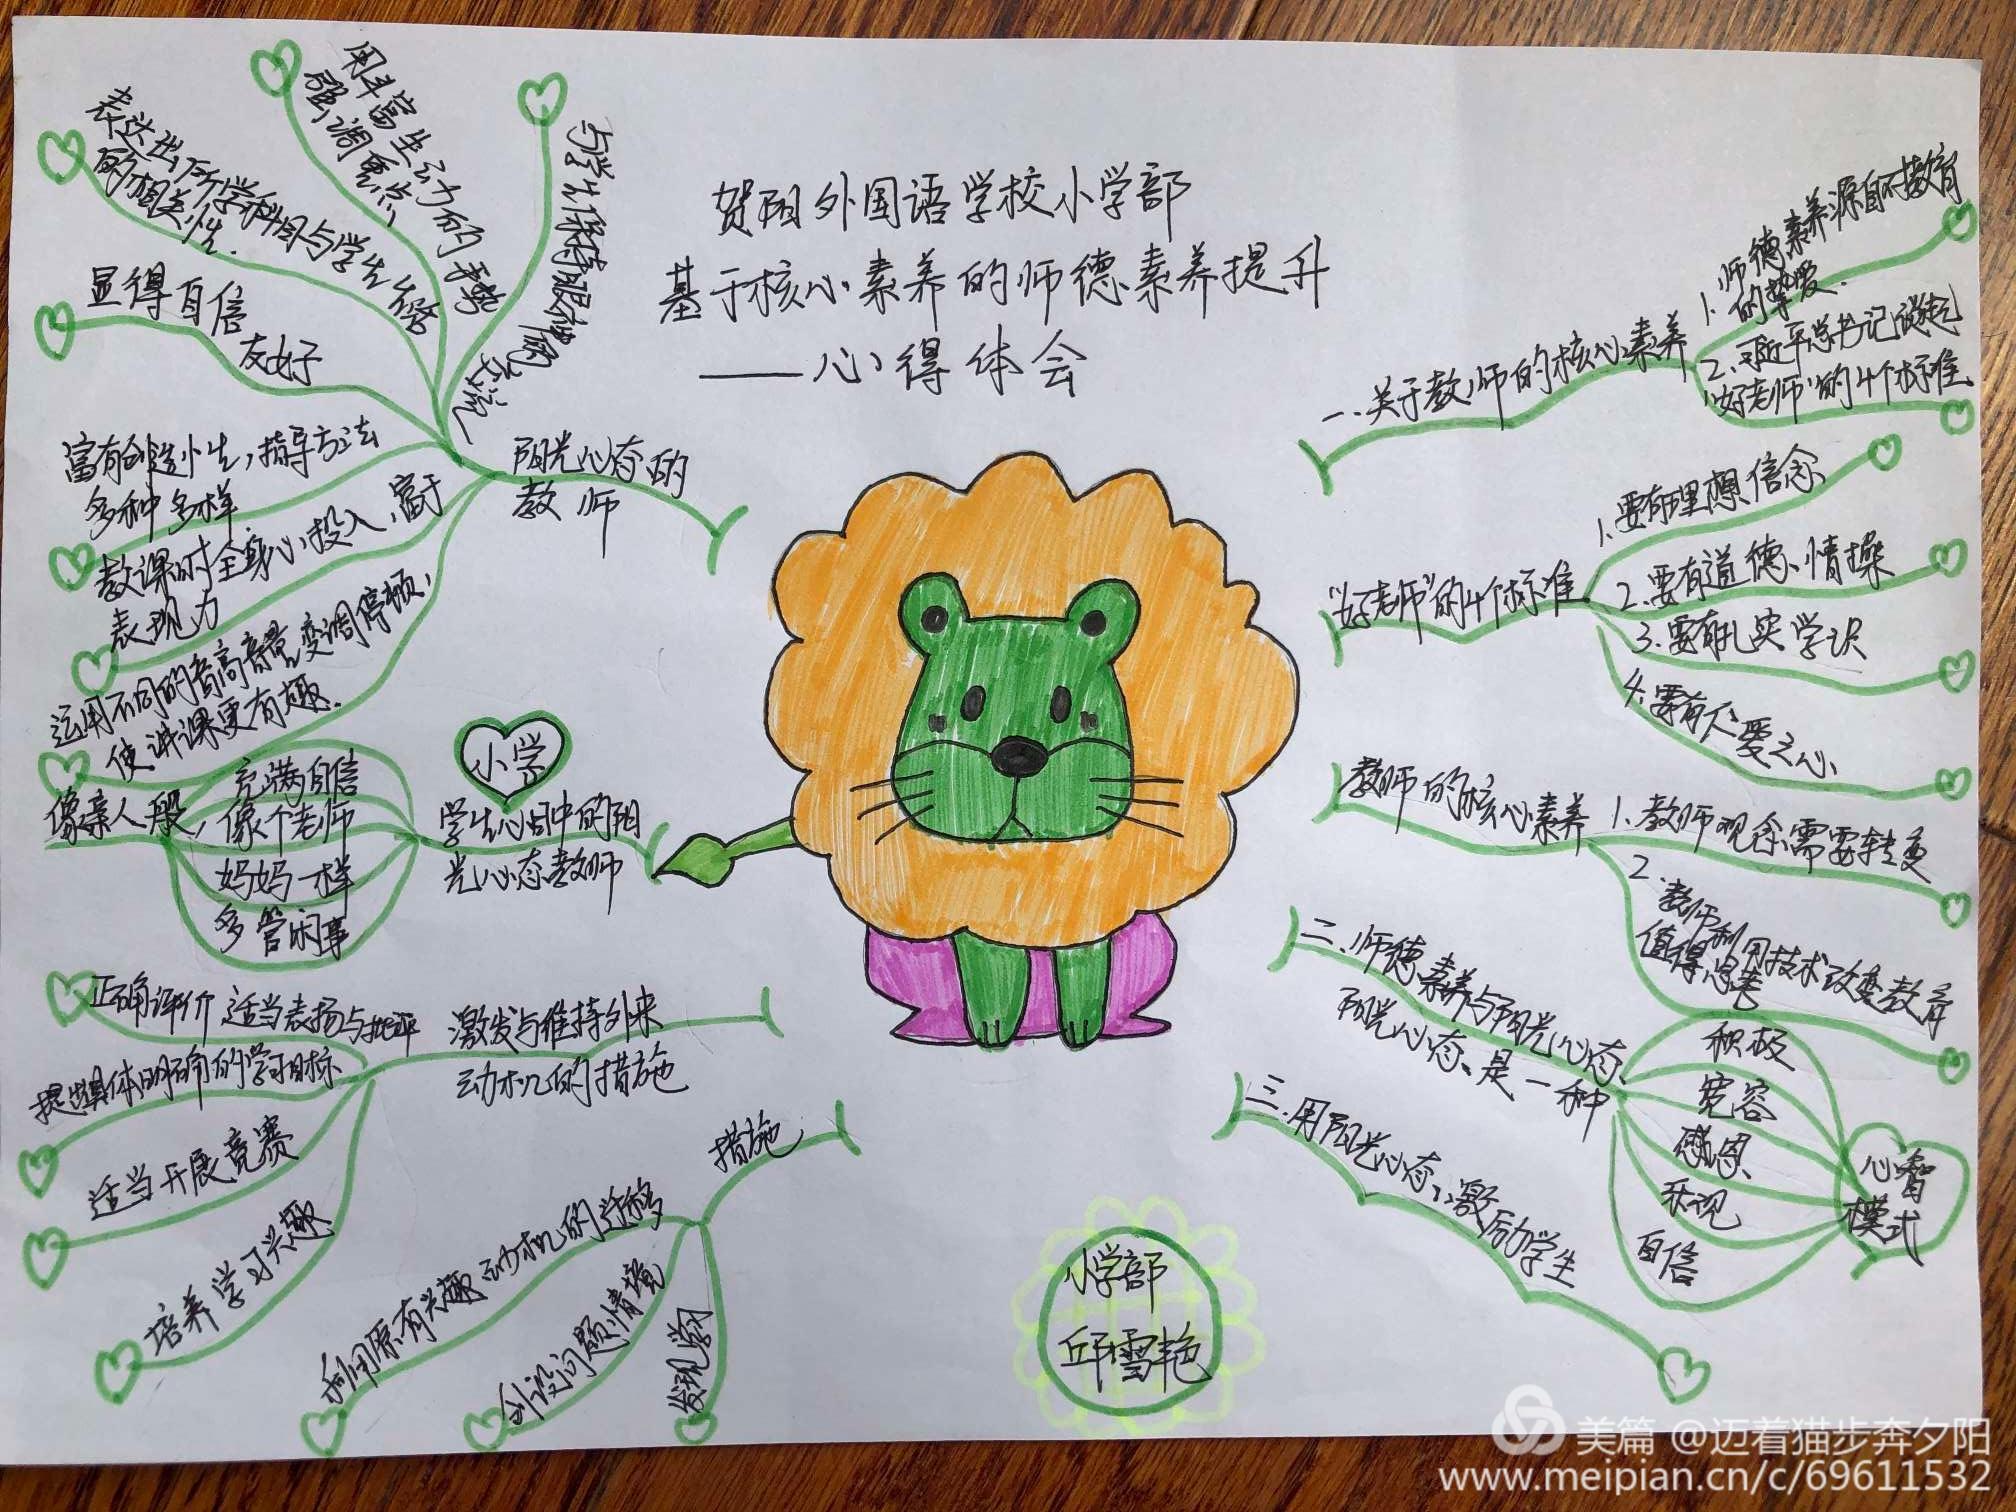 贺阳外国语学校小学部
基于核心素养的师德素养提升
——心得体会
一.关于教师的核心素养
1.师德素养源自于教育
的挚爱.
2.习近平总书记谈起
"好老师"的4个标准
"好老师"的4个标准
1.要有理想信念
2.要有道德、情操
3.要有扎实学识
4.要有仁爱之心
教师的核心素养
1.教师观念需要转变
2.教师利用技术改变教育
值得思考
二.师德素养与阳光心态
阳光心态、是一种
积极
宽容
感恩
乐观
自信
心智
模式
三.用阳光心态,激励学生
阳光心态的
教师
与学生保持眼神
交流
用丰富生动的手势
强调重点
表达出所学科目与学生生活
的相关性.
显得自信
友好
富有创造性,指导方法
多种多样
教课时全身心投入,富于
表现力
运用不同的音高音量变调停顿,
使讲课更有趣.
小学
学生心目中的阳
光心态教师
充满自信
像亲人般,像个老师
妈妈一样
多管闲事
激发与维持外来
动机的措施
正确评价 适当表扬与批评
提出具体明确的学习目标
适当开展竞赛
培养学习兴趣
措施
利用原有兴趣动机的迁移
创设问题情境
发现学习
小学部
邱雪艳
美篇 @迈着猫步奔夕阳
www.meipian.cn/c/69611532